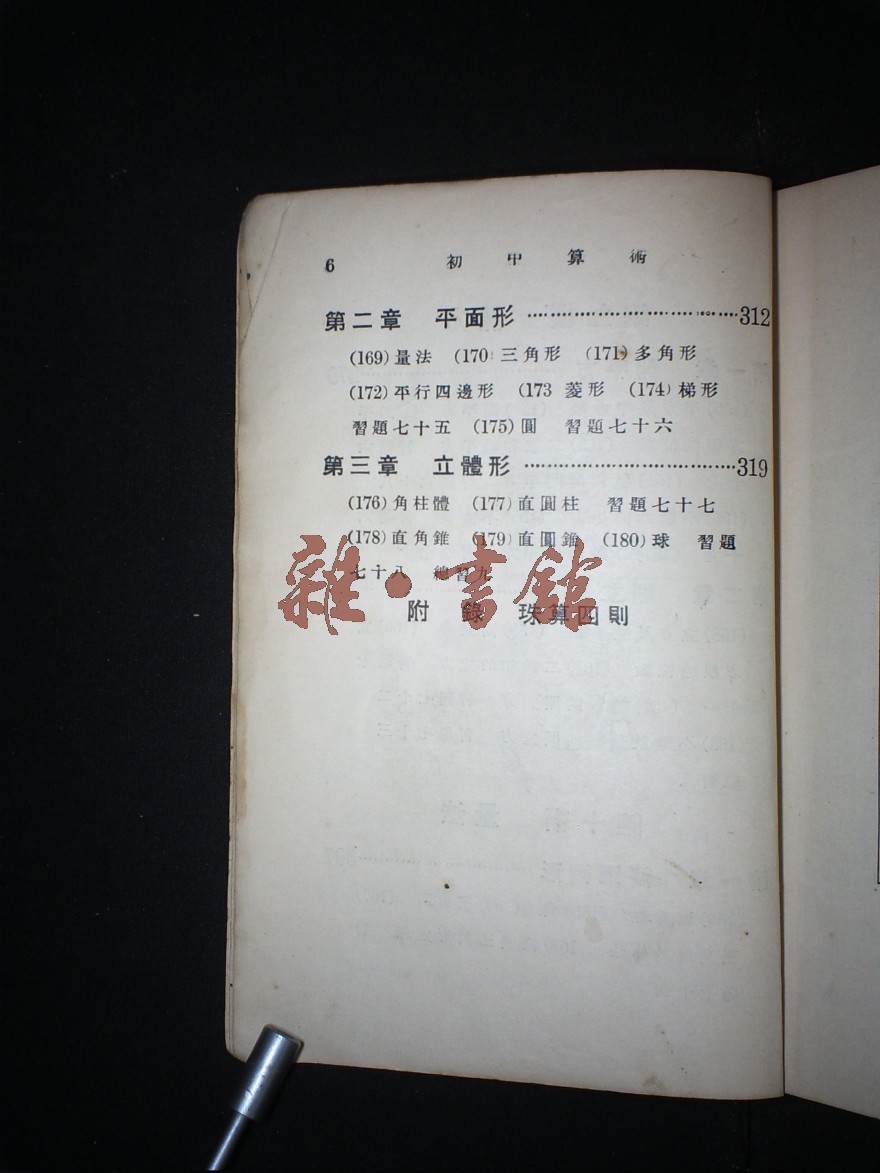 6 初中算術
第二章 平面形 ……………………………312
(169)量法 (170)三角形 (171)多角形
(172)平行四邊形 (173 菱形 (174)梯形
習題七十五 (175)圓 習題七十六
第三章 立體形 ……………………………319
(176)角柱體 (177)直圓柱 習題七十七
(178)直角錐 (179)直圓錐 (180)球 習題
七十八 總習九
附錄 珠算四則
雜·書館